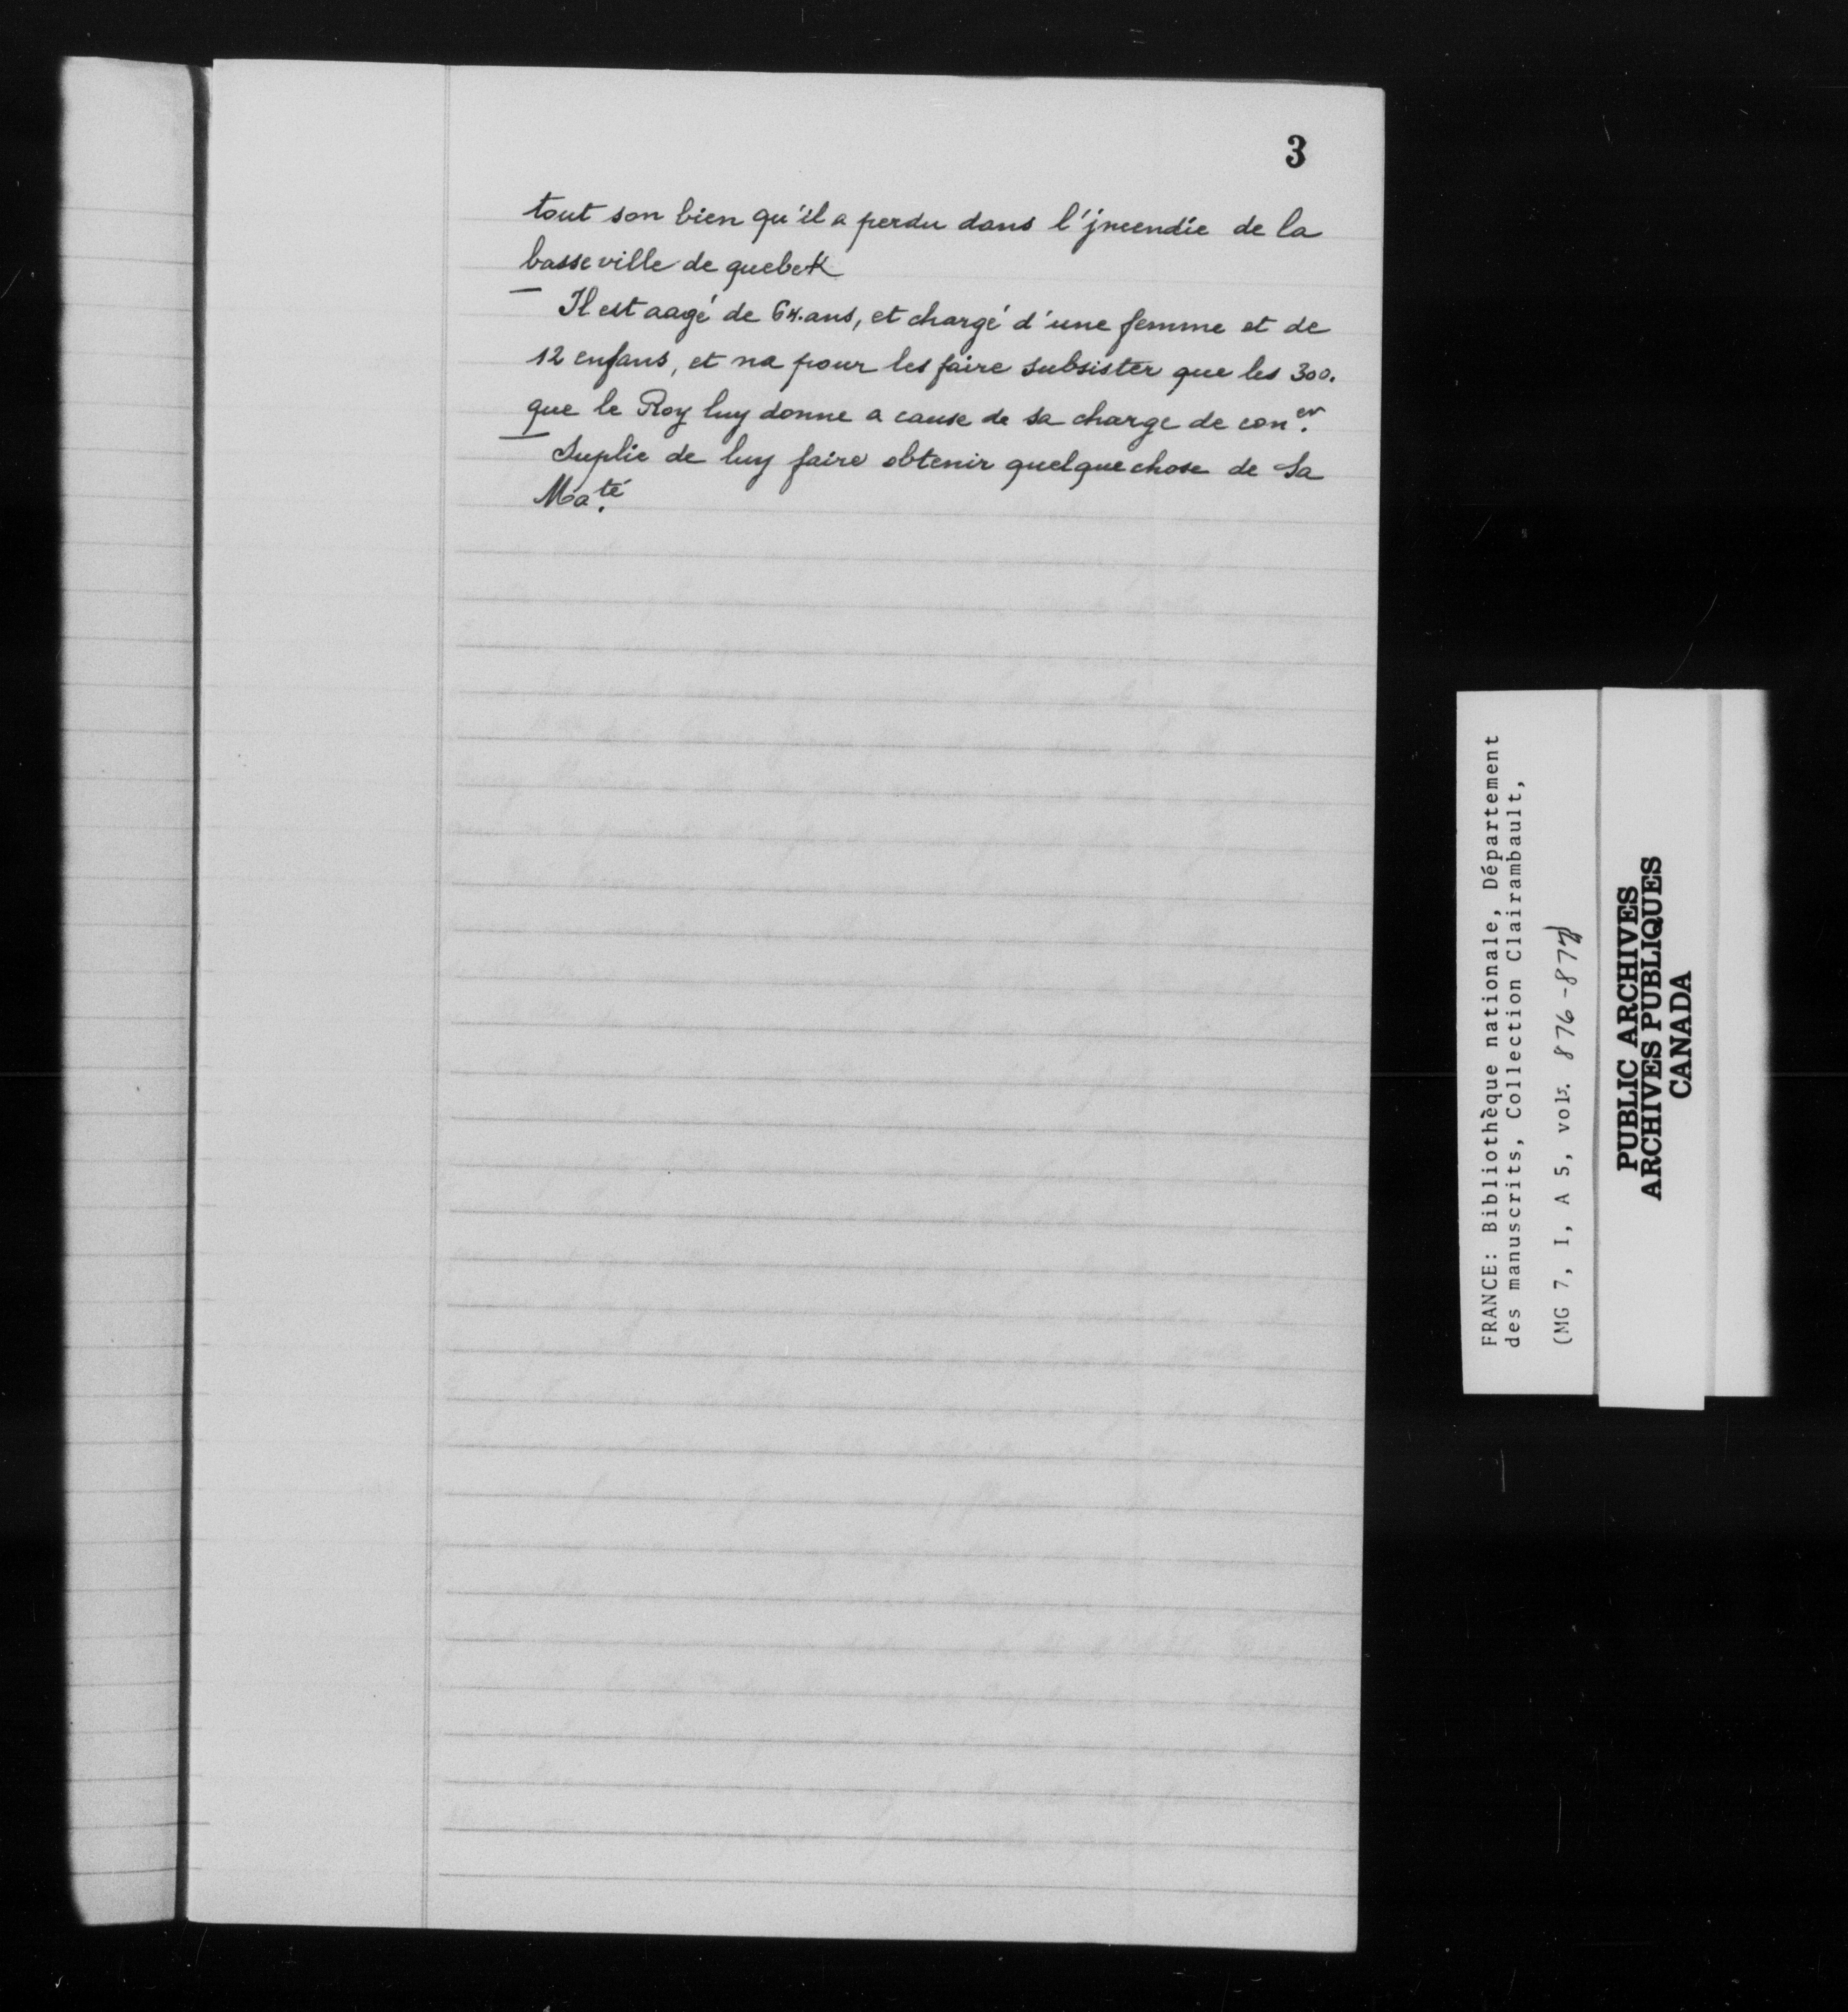 3
tout son bien qu'il a perdu dans l'jncendie de la
basse ville de quebek
Il est aagé de 64. ans, et chargé d'une femme et de
12 enfans, et na pour les faire subsister que les 300.
que le Roy luy donne a cause de sa charge de con.er
Suplie de luy faire obtenir quelque chose de sa
Ma.té
FRANCE: Bibliothèque nationale, Département
des manuscrits, Collection Clairambault,
(MG 7, I, A 5, vols. 876-877)
PUBLIC ARCHIVES
ARCHIVES PUBLIQUES
CANADA